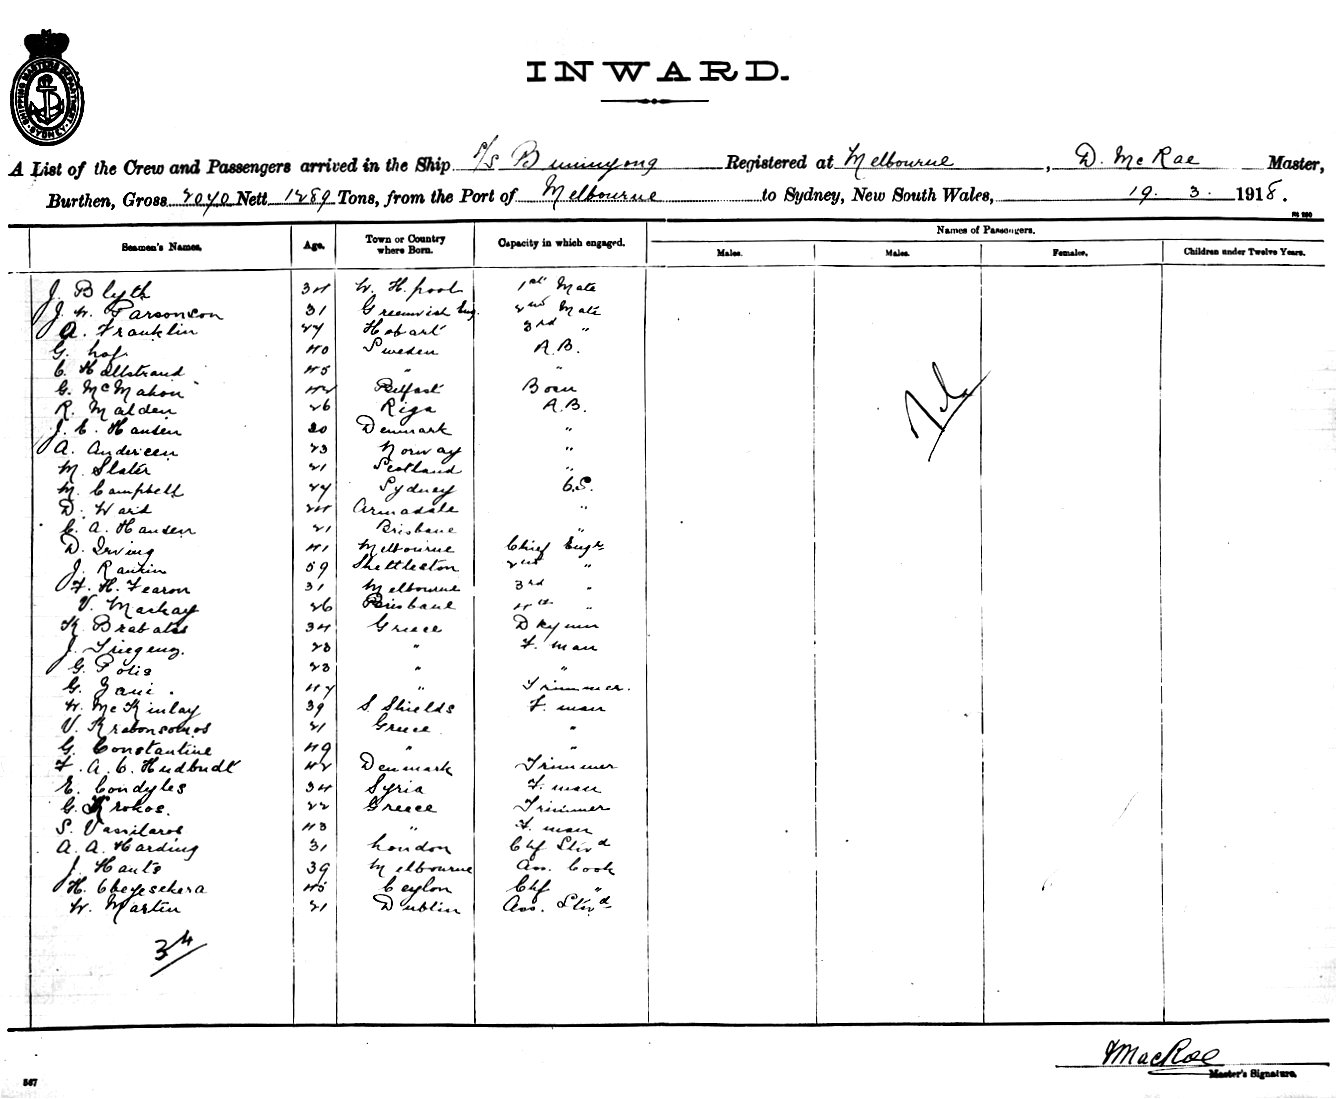 SHIPPING MASTERS DEPARTMENT SYDNEY
INWARD.
A List of the Crew and Passengers arrived in the Ship S/S Buninyong Registered at Melbourne, D. McRae Master,
Burthen, Gross 2070 Nett 1289 Tons, from the Port of Melbourne to Sydney, New South Wales, 19. 3. 1918.
Seamen's Names. Age. Town or Country where Born. Capacity in which engaged. Names of Passengers.
Males. Males. Females. Children under Twelve Years.
J. Blyth 34 W. H. pool 1st Mate
J. W. Parsonson 31 Greenwich Eng. 2nd Mate
A. Franklin 27 Hobart 3rd "
G. 40 Sweden A.B.
C. Hallstrand 45 " "
G. McMahon 42 Belfast Bosn
R. Malden 26 Riga A.B.
J. C. Hansen 20 Denmark "
A. Andersen 23 Norway "
M. Slater 21 Scotland "
M. Campbell 27 Sydney O.S.
D. Ward 24 Armadale "
C. A. Hansen 21 Brisbane "
D. Irving 41 Melbourne Chief Engr
J. Rankin 59 Shettleston 2nd "
F. H. Fearon 31 Melbourne 3rd "
V. Mackay 26 Brisbane 4th "
K. Brabatas 34 Greece Dkyman
J. 23 " F. man
G. Potis 23 " "
G. Zani. 47 " Trimmer.
W. McKinlay 39 S Shields F. man
V. 21 Greece "
G. Constantine 49 " "
F. A. C. 42 Denmark Trimmer
E. Condyles 34 Syria F. man
G. Krokos. 22 Greece Trimmer
S. Vassilaros 43 " F. man
A. A. Harding 31 London Chf Stwd
J. Hants 39 Melbourne Ass. Cook
H. Obeyesekera 45 Ceylon Chf "
W. Martin 21 Dublin Ass. Stwd
34
MacRae
Master's Signature.
567